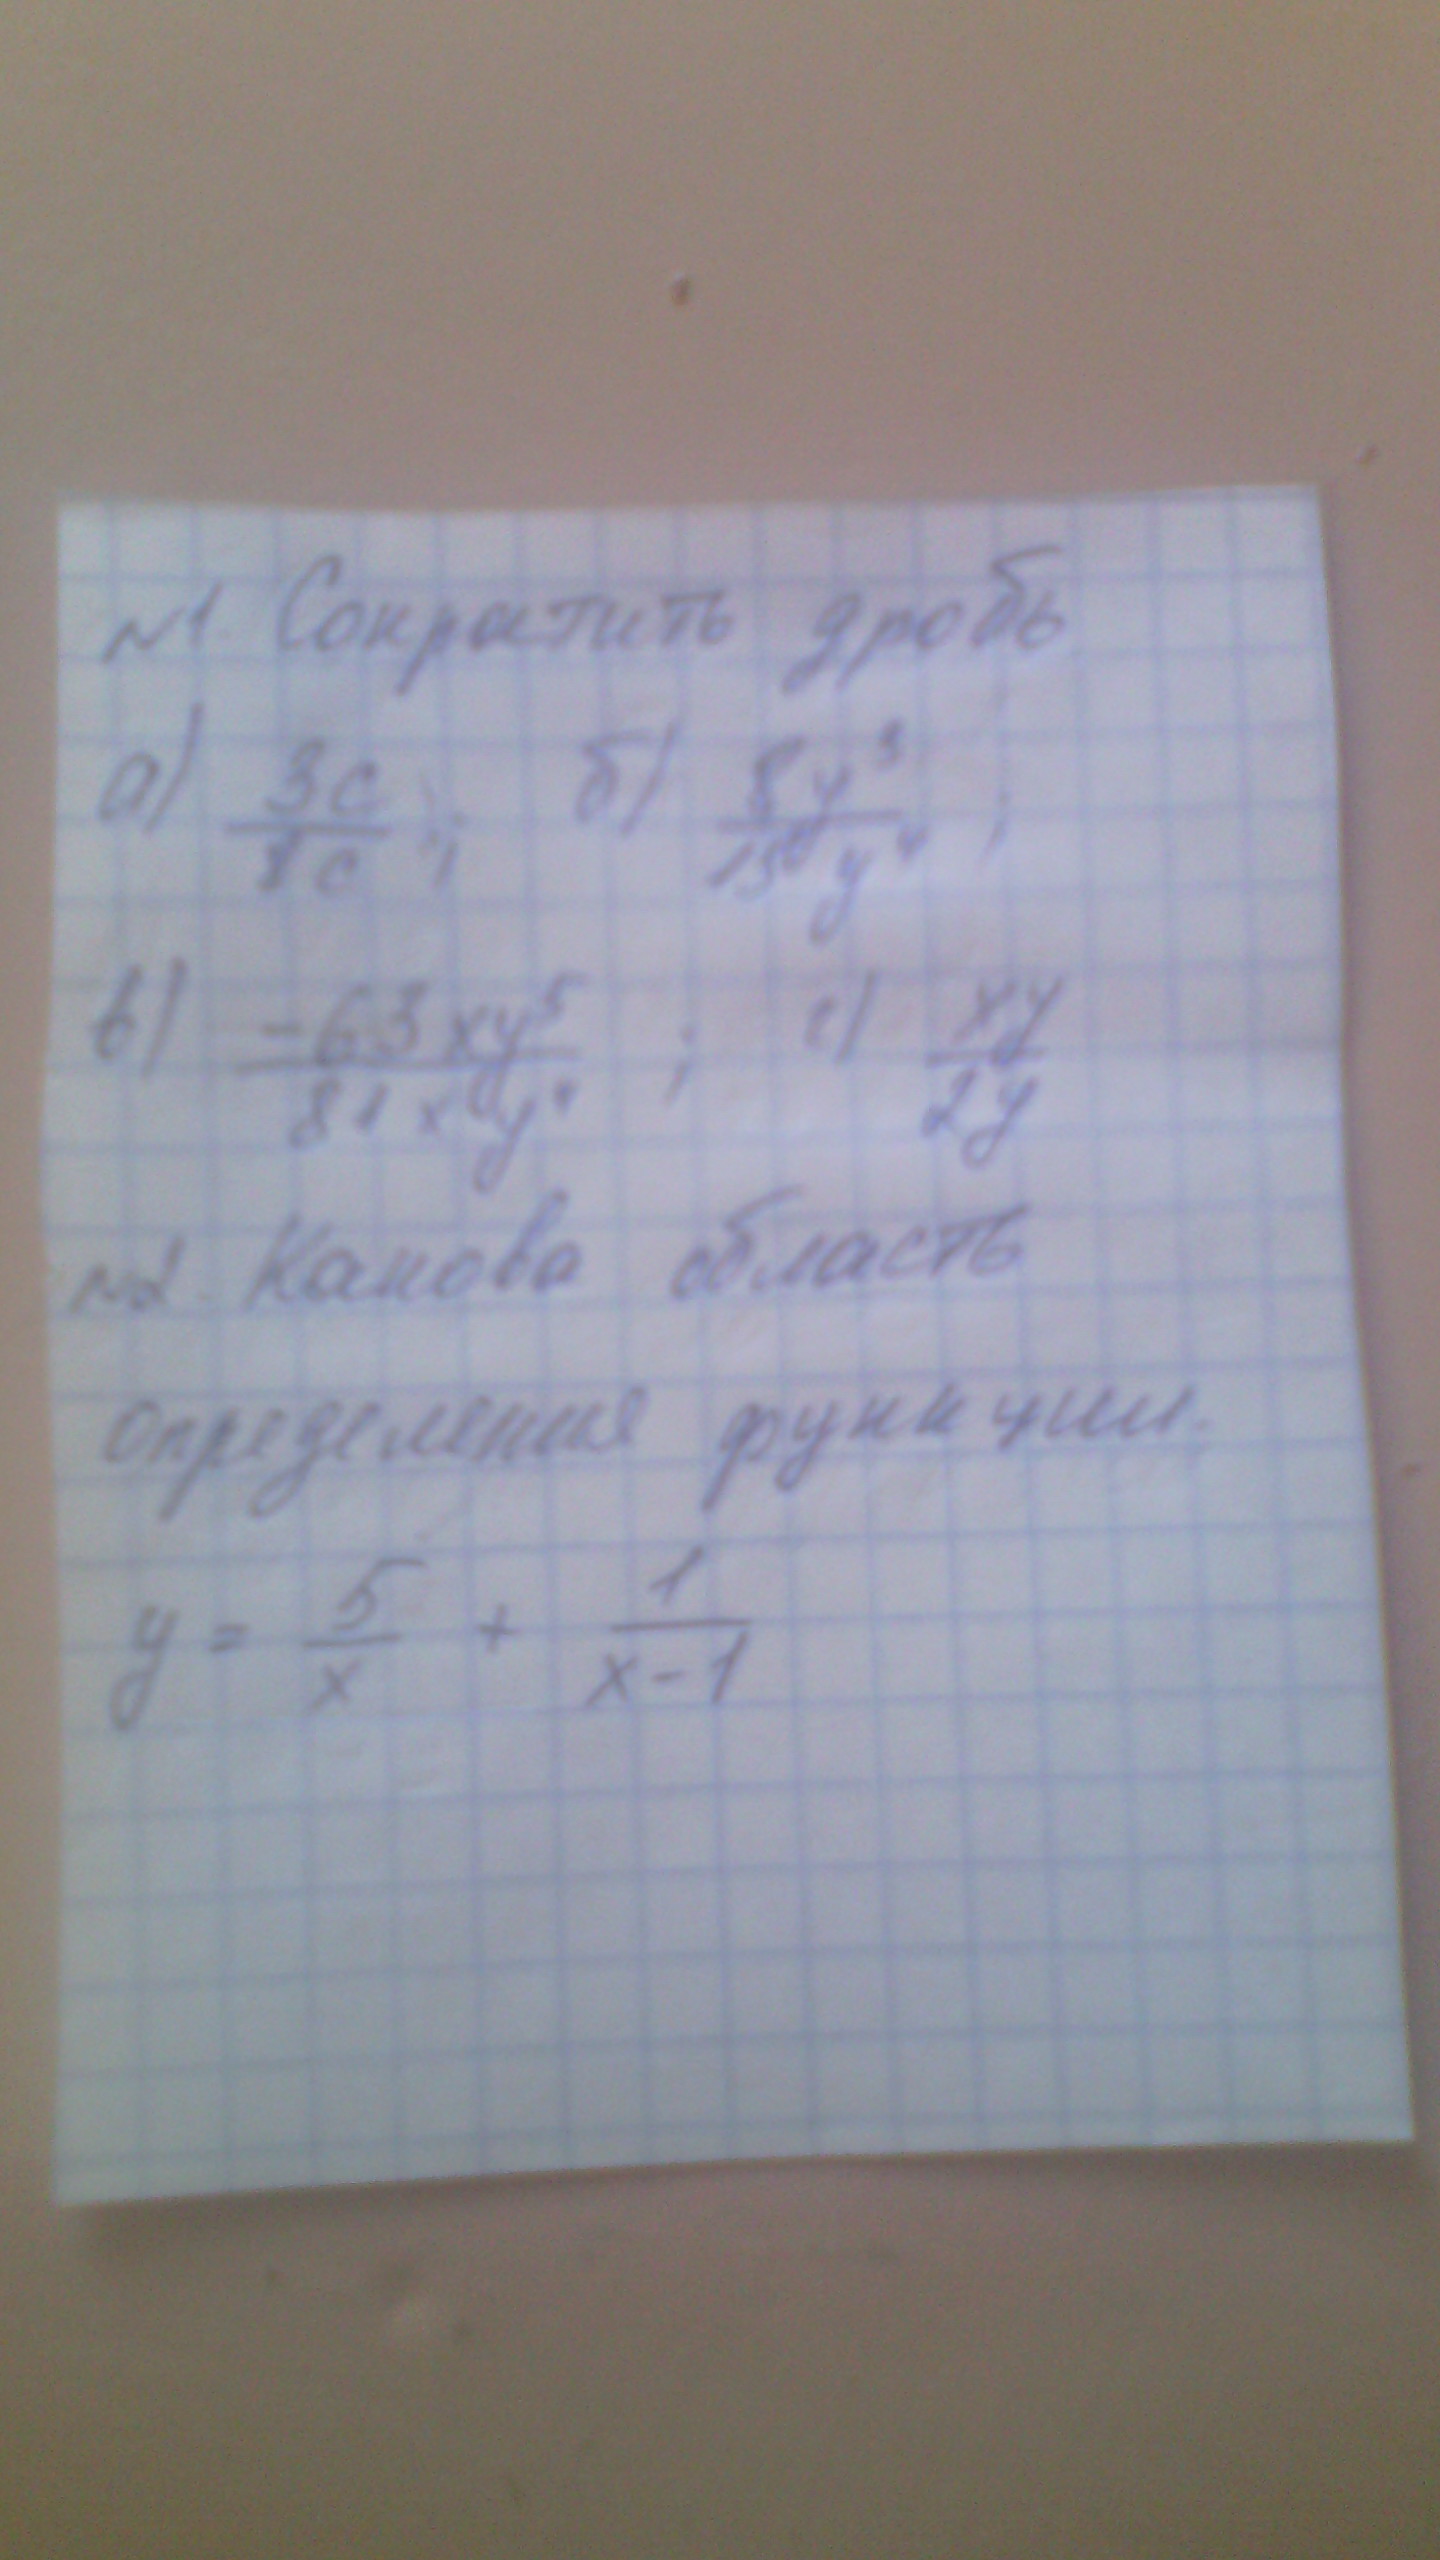 №1. Сократить дробь
а) 3c/8c ; б) 8y³/15y⁴ ;
в) -63xy⁵/81xy⁴ ; г) xy/2y
№2. Какова область
определения функции.
y = 5/x + 1/(x-1)